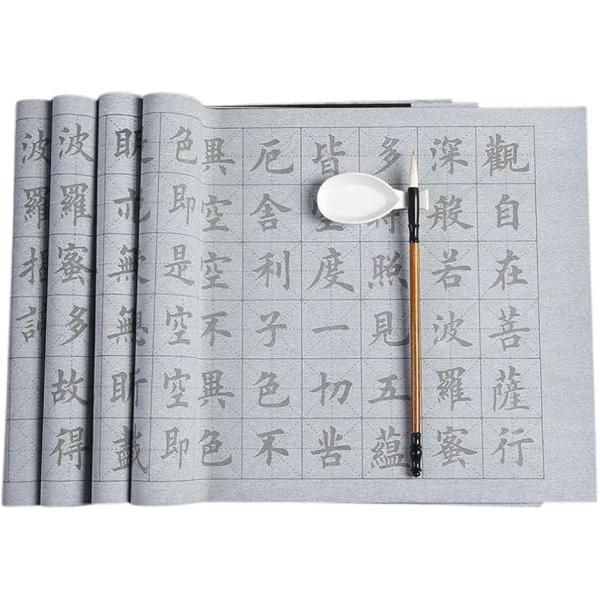 觀自在菩薩行
深般若波羅蜜
多時照見五蘊
皆空度一切苦
厄舍利子色不
異空空不異色
色即是空空即
明亦無無明盡
波羅蜜多故得
波羅揭諦